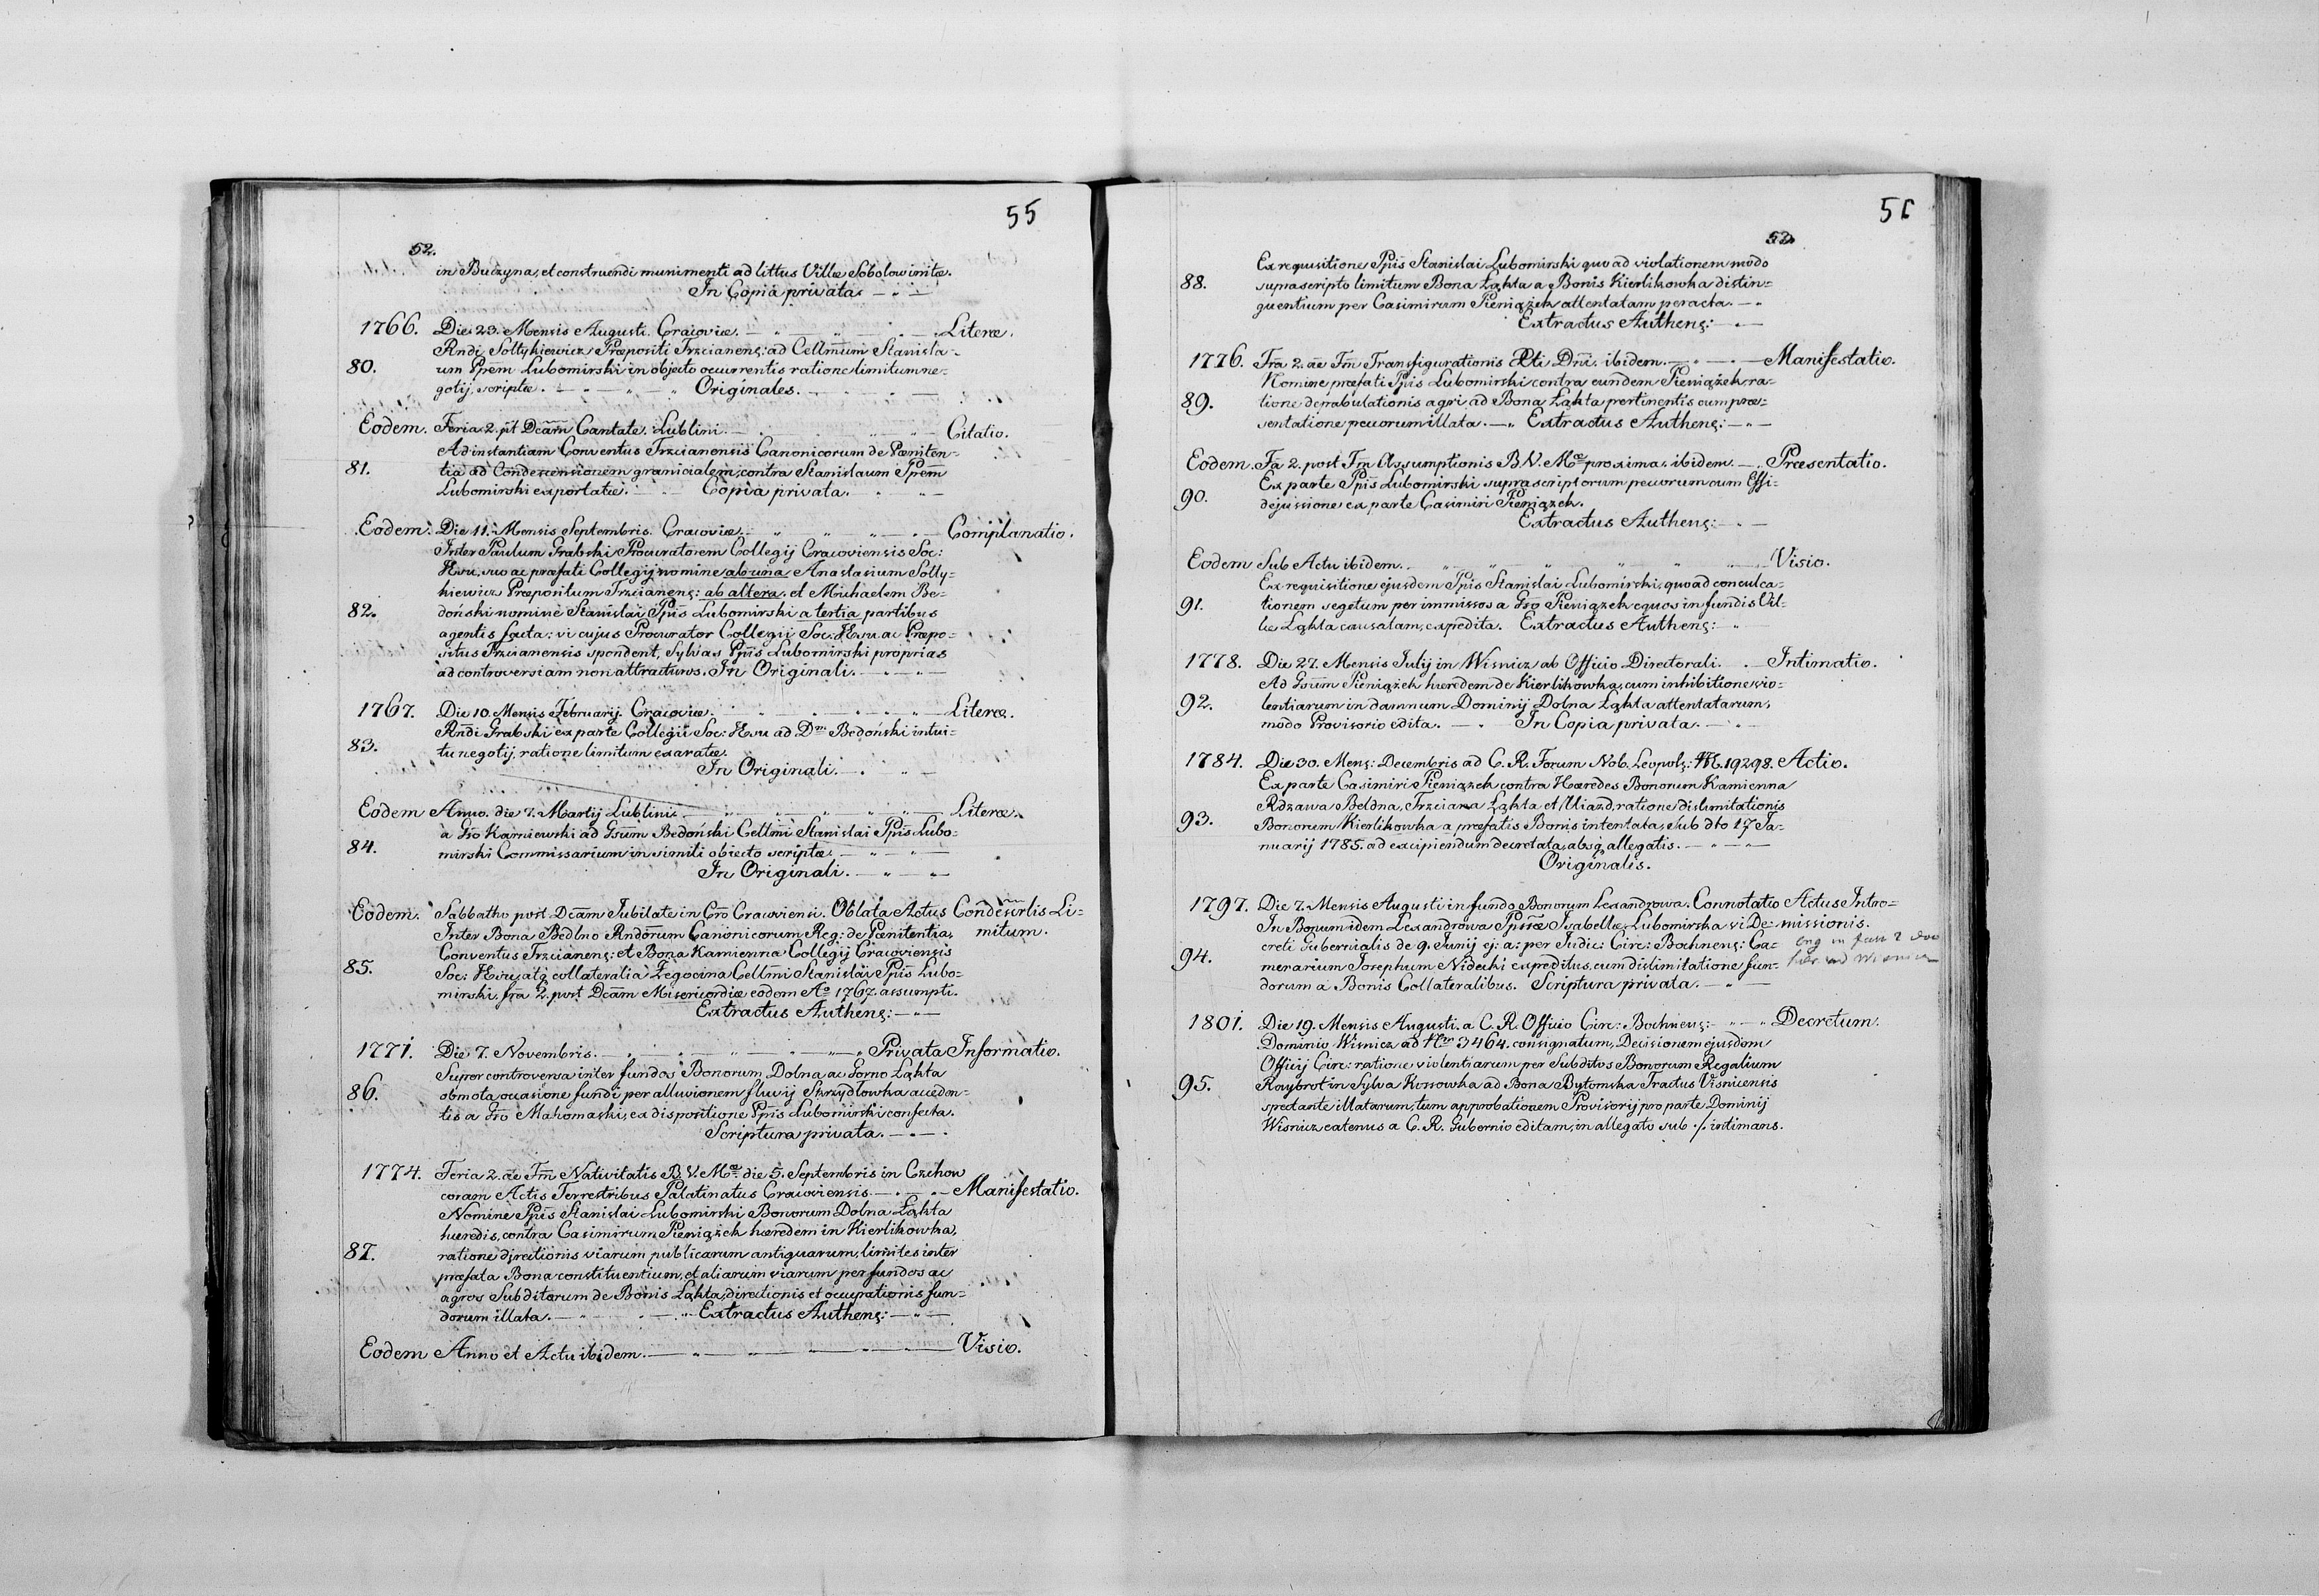 55
52.
in Buczyna, et construendi munimenti ad littus Villæ Sobolow initæ.
In Copia privata.
1766. Die 23. Mensis Augusti. Cracoviæ. Literæ.
Rndi Soltykiewicz Præpositi Trzcianens: ad Cellmum Stanisla-
80. um Ppem Lubomirski in objecto occurrentis ratione limitum ne-
gotij, scriptæ. Originales.
Eodem. Feria 2. pt Dcam Cantate. Lublini. Citatio.
Ad instantiam Conventus Trzcianensis Canonicorum de Pæniten-
81. tia ad Condescensionem granicialem, contra Stanislaum Ppem
Lubomirski exportatæ. Copia privata.
Eodem. Die 11. Mensis Septembris. Cracoviæ. Complanatio.
Inter Paulum Grabski Procuratorem Collegij Cracoviensis Soc:
Jesu, suo ac præfati Collegij nomine ab una Anastasium Solty-
kiewicz Præpositum Trzcianens: ab altera. et Michaelem Be-
82. doński nomine Stanislai Ppis Lubomirski a tertia partibus
agentis facta: vi cujus Procurator Collegii Soc: Jesu ac Præpo-
situs Trzcianensis spondent, Sylvas Ppis Lubomirski proprias
ad controversiam non attracturos. In Originali.
1767. Die 10. Mensis Februarij. Cracoviæ. Literæ.
Rndi Grabski ex parte Collegii Soc: Jesu ad Dnm Bedoński intui-
83. tu negotij, ratione limitum exaratæ.
In Originali.
Eodem Anno. die 7. Martij Lublini. Literæ.
a Gso Karniewski ad Gsum Bedoński Cellmi Stanislai Ppis Lubo-
84. mirski Commissarium in simili objecto scriptæ.
In Originali.
Eodem. Sabbatho post Dcam Jubilate in Cro Cracoviensi. Oblata Actus Condescrlis Li-
Inter Bona Bedlno Rndorum Canonicorum Reg: de Pænitentia, mitum.
Conventus Trzcianens: et Bona Kamienna Collegij Cracoviensis
85. Soc: Jesu, atq collateralia Żegocina Cellmi Stanislai Ppis Lubo-
mirski. fra 2. post Dcam Misericordiæ eodem Ao 1767. assumpti.
Extractus Authens:
1771. Die 7. Novembris. Privata Informatio.
Super controversa inter fundos Bonorum Dolna ac Gorno Łąkta
86. obmota occasione fundi per alluvionem fluvij Skrzydłowka acceden-
tis a Gso Mahomaski, ex dispositione Ppis Lubomirski confecta.
Scriptura privata.
1774. Feria 2. ae Fm Nativitatis B.V. Mæ die 5. Septembris in Czchow
coram Actis Terrestribus Palatinatus Cracoviensis. Manifestatio.
Nomine Ppis Stanislai Lubomirski Bonorum Dolna Łąkta
hæredis, contra Casimirum Pieniążek hæredem in Kierlikowka,
87. ratione directionis viarum publicarum antiquarum, limites inter
præfata Bona constituentium, et aliarum viarum per fundos ac
agros Subditorum de Bonis Łąkta, directionis et occupationis fun-
dorum illata. Extractus Authens:
Eodem Anno et Actu ibidem. Visio.
56
53.
Ex requisitione Ppis Stanislai Lubomirski quo ad violationem modo
88. suprascripto limitum Bona Łąkta a Bonis Kierlikowka distin-
guentium per Casimirum Pieniążek attentatam peracta.
Extractus Authens:
1776. Fra 2. ae Fm Transfigurationis Xti Dni. ibidem. Manifestatio.
Nomine præfati Ppis Lubomirski contra eundem Pieniążek ra-
89. tione depabulationis agri ad Bona Łąkta pertinentis cum præ-
sentatione pecorum illata. Extractus Authens:
Eodem. Fa 2. post Fm Assumptionis B.V. Mæ proxima. ibidem. Præsentatio.
Ex parte Ppis Lubomirski suprascriptorum pecorum cum Effi-
90. dejussione ex parte Casimiri Pieniążek.
Extractus Authens:
Eodem Sub Actu ibidem. Visio.
Ex requisitione ejusdem Ppis Stanislai Lubomirski, quo ad conculca-
91. tionem segetum per immissos a Gso Pieniążek equos in fundis Vil-
læ Łąkta causatam, expedita. Extractus Authens:
1778. Die 27. Mensis Julij in Wisnicz ab Officio Directorali. Intimatio.
Ad Gsum Pieniążek hæredem de Kierlikowka, cum inhibitione vio-
92. lentiarum in damnum Dominij Dolna Łąkta attentatarum,
modo Provisorio edita. In Copia privata.
1784. Die 30. Mens: Decembris ad C. R. Forum Nob. Leopols: 19298. Actio.
Ex parte Casimiri Pieniążek contra Hæredes Bonorum Kamienna
Rdzawa Beldna, Trzciana Łąkta et Uiazd, ratione dislimitationis
93. Bonorum Kierlikowka a præfatis Bonis intentata, sub dto 17 Ja-
nuarij 1785. ad excipiendum decretata, absq allegatis.
Originalis.
1797. Die 7. Mensis Augusti in fundo Bonorum Lexandrowa. Connotatio Actus Intro-
In Bonum idem Lexandrowa Ppissæ Isabellæ Lubomirska vi De- missionis.
creti Gubernialis de 9. Junij ej: a: per Judic: Circ: Bochnens: Ca-
94. merarium Josephum Nidecki expeditus, cum dislimitatione fun-
dorum a Bonis Collateralibus. Scriptura privata.
1801. Die 19. Mensis Augusti. a C. R. Officio Circ: Bochnens: Decretum.
Dominio Wisnicz ad Nrm 3464. consignatum, Decisionem ejusdem
Officij Circ: ratione violentiarum per Subditos Bonorum Regalium
95. Raybrot in Sylva Kossowka ad Bona Bytomska Tractus Visnicensis
spectante illatarum, tum approbationem Provisorij pro parte Dominij
Wisnicz eatenus a C. R. Gubernio editam, in allegato sub ./. intimans.